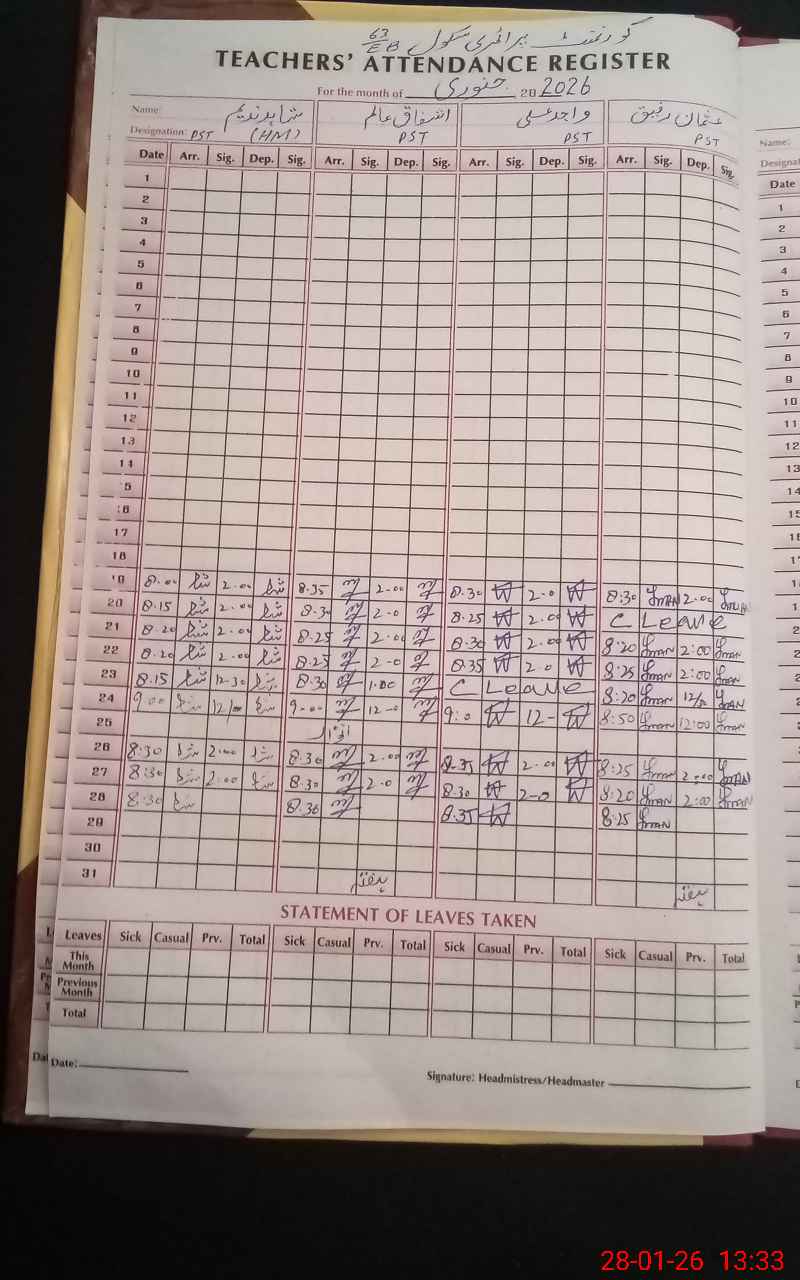 گورنمنٹ پرائمری سکول 63/EB
TEACHERS' ATTENDANCE REGISTER
For the month of جنوری 20 2026
Name: شاہد ندیم اشفاق عالم واجد علی عثمان رفیق
Designation: PST (HM) PST PST PST
Date Arr. Sig. Dep. Sig. Arr. Sig. Dep. Sig. Arr. Sig. Dep. Sig. Arr. Sig. Dep. Sig.
1
2
3
4
5
6
7
8
9
10
11
12
13
14
15
16
17
18
19 8.00 2.00 8.35 2.00 8.30 2.0 8:30 2.00
20 8.15 2.00 8.30 2.0 8.25 2.00 C Leave
21 8.20 2.00 8.25 2.00 8.30 2.00 8:20 2:00
22 8.20 2.00 8.25 2.0 8.35 2.0 8:25 2:00
23 8.15 12.30 8.30 1.00 C Leave 8:20 12/00
24 9.00 12/00 9.00 12.0 9:0 12- 8:50 12:00
25 اتوار
26 8:30 2:00 8.30 2.00 8.35 2.00 8:25 2:00
27 8:30 2:00 8.30 2.0 8.30 2-0 8:20 2:00
28 8:30 8.30 8.35 8:25
29
30
31 ہفتہ ہفتہ
STATEMENT OF LEAVES TAKEN
Leaves Sick Casual Prv. Total Sick Casual Prv. Total Sick Casual Prv. Total Sick Casual Prv. Total
This Month
Previous Month
Total
Date:
Signature: Headmistress/Headmaster
Name:
Date
1
2
3
4
5
6
7
8
9
10
11
12
13
14
28-01-26 13:33